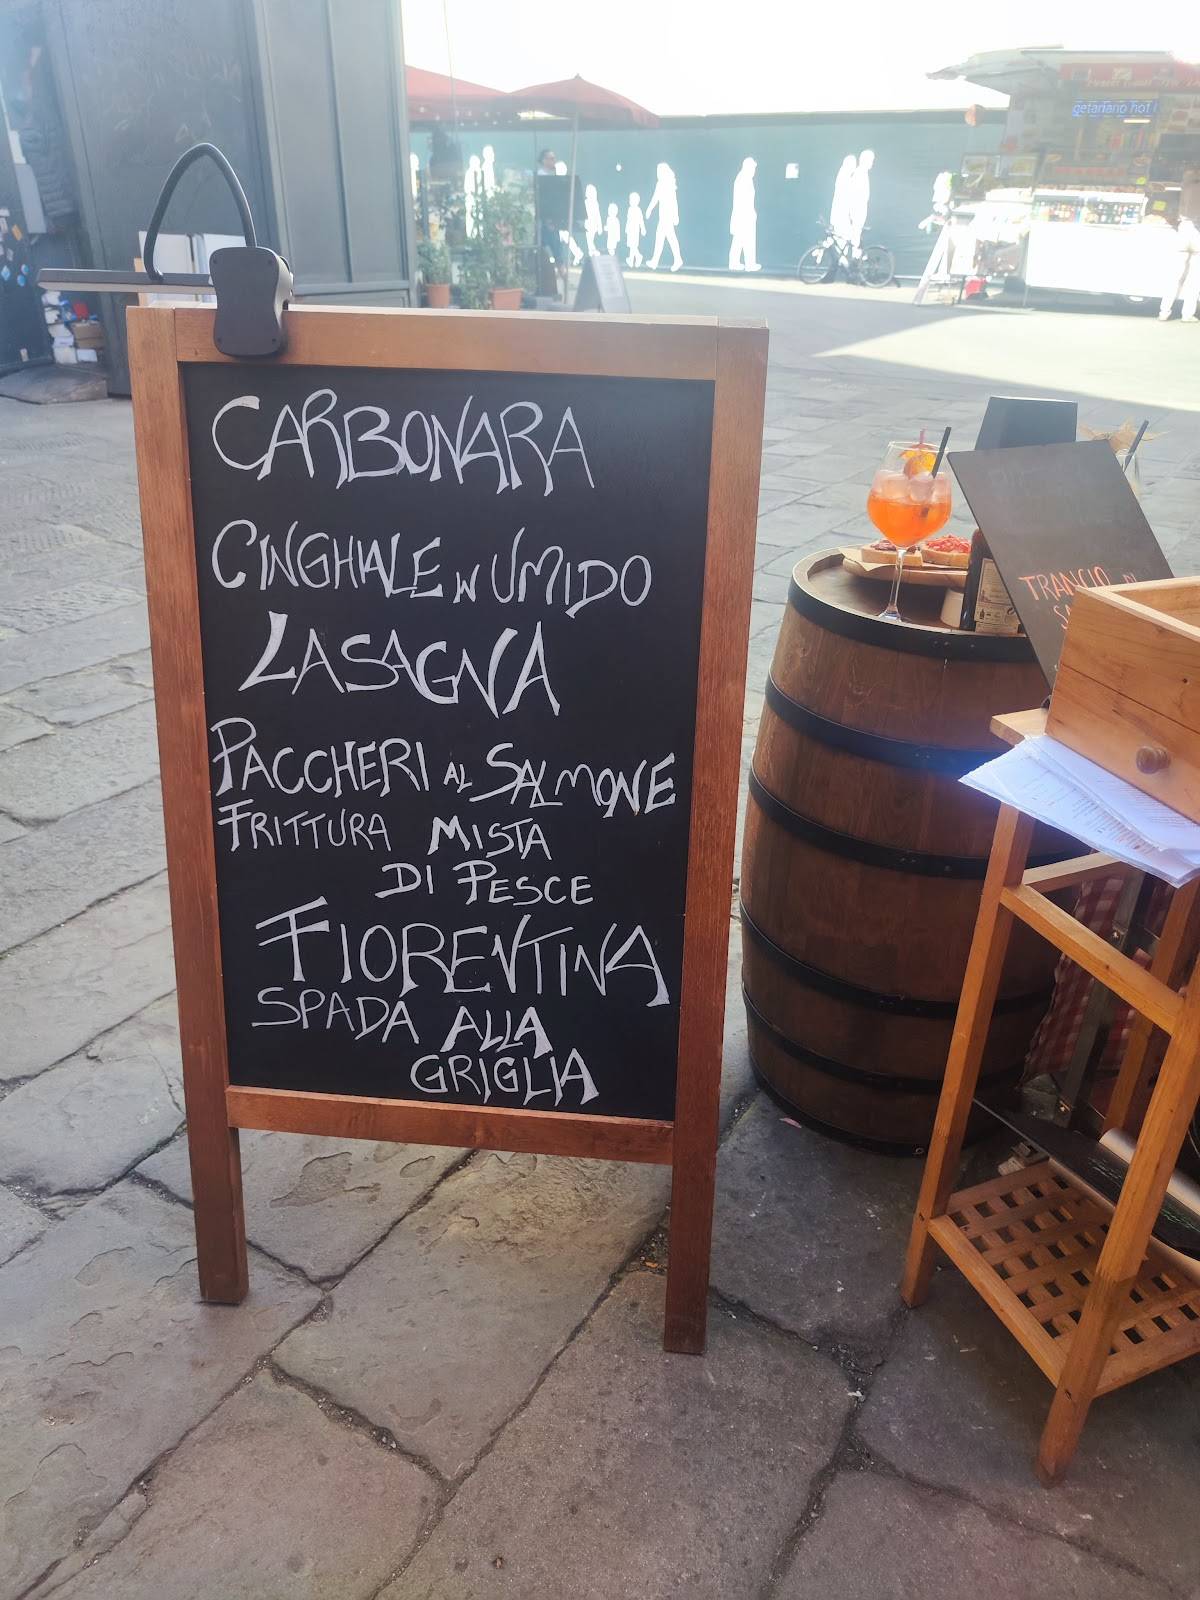 getariano hot
CARBONARA
CINGHIALE IN UMIDO
LASAGNA
PACCHERI AL SALMONE
FRITTURA MISTA
DI PESCE
FIORENTINA
SPADA ALLA
GRIGLIA
TRANCIO DI